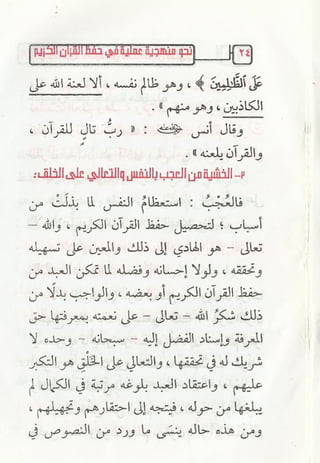 ٢٤
نحو منهجية عملية في حفظ القرآن الكريم
عَلَى الظَّالِمِينَ ﴾ ، وهو ظالم نفسه ، ألا لعنة الله على
الكاذبين ، وهو منهم » .
وقال أنس رضي الله عنه : « ربُّ تالٍ للقرآن ،
والقرآن يلعنه » .
٢- الخشية من العجب بالنفس والتعالي على الخلق :
فالعُجْبُ : استعظامُ النفس لما بذلَتْ من
أسباب ؛ لتحصيل حفظ القرآن الكريم ، والله –
تعالى – هو الهادي إلى ذلك والمعين على تسهيله
وتحققه ، ولولا إحسانه وفضله لما تمكن العبد من
حفظ القرآن الكريم أو بعضه ، والواجب بدلًا من
ذلك شكرُ الله – تعالى – على نعمته بمعرفتها حق
المعرفة وإسناد الفضل إليه – سبحانه – وحده لا
شريك له في تحققها ، والتعالي على الخَلْق هو التكبر
عليهم ، واعتقاد العبد بلوغه مرتبة في الكمال لم
يبلغها من حوله ، فيتجه إلى احتقارهم وتجهيلهم ،
ومن هذه حاله ينسَى ما ورد من النصوص في